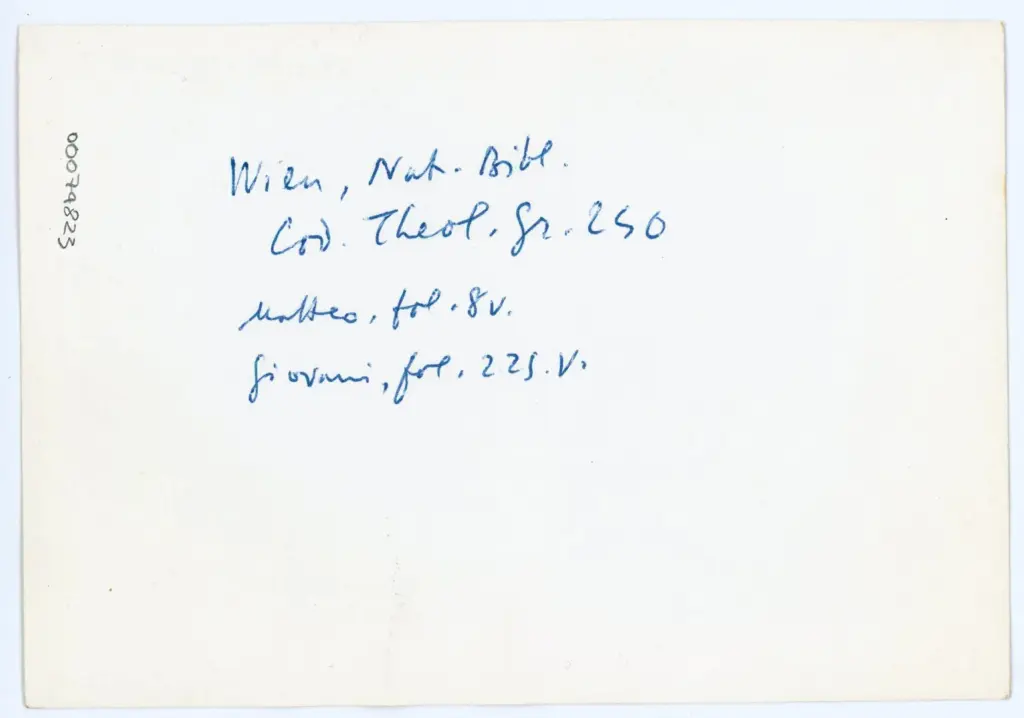 00074823
Wien, Nat. Bibl.
Cod. Theol. Gr. 250
Matteo, fol. 8v.
Giovani, fol. 225.v.